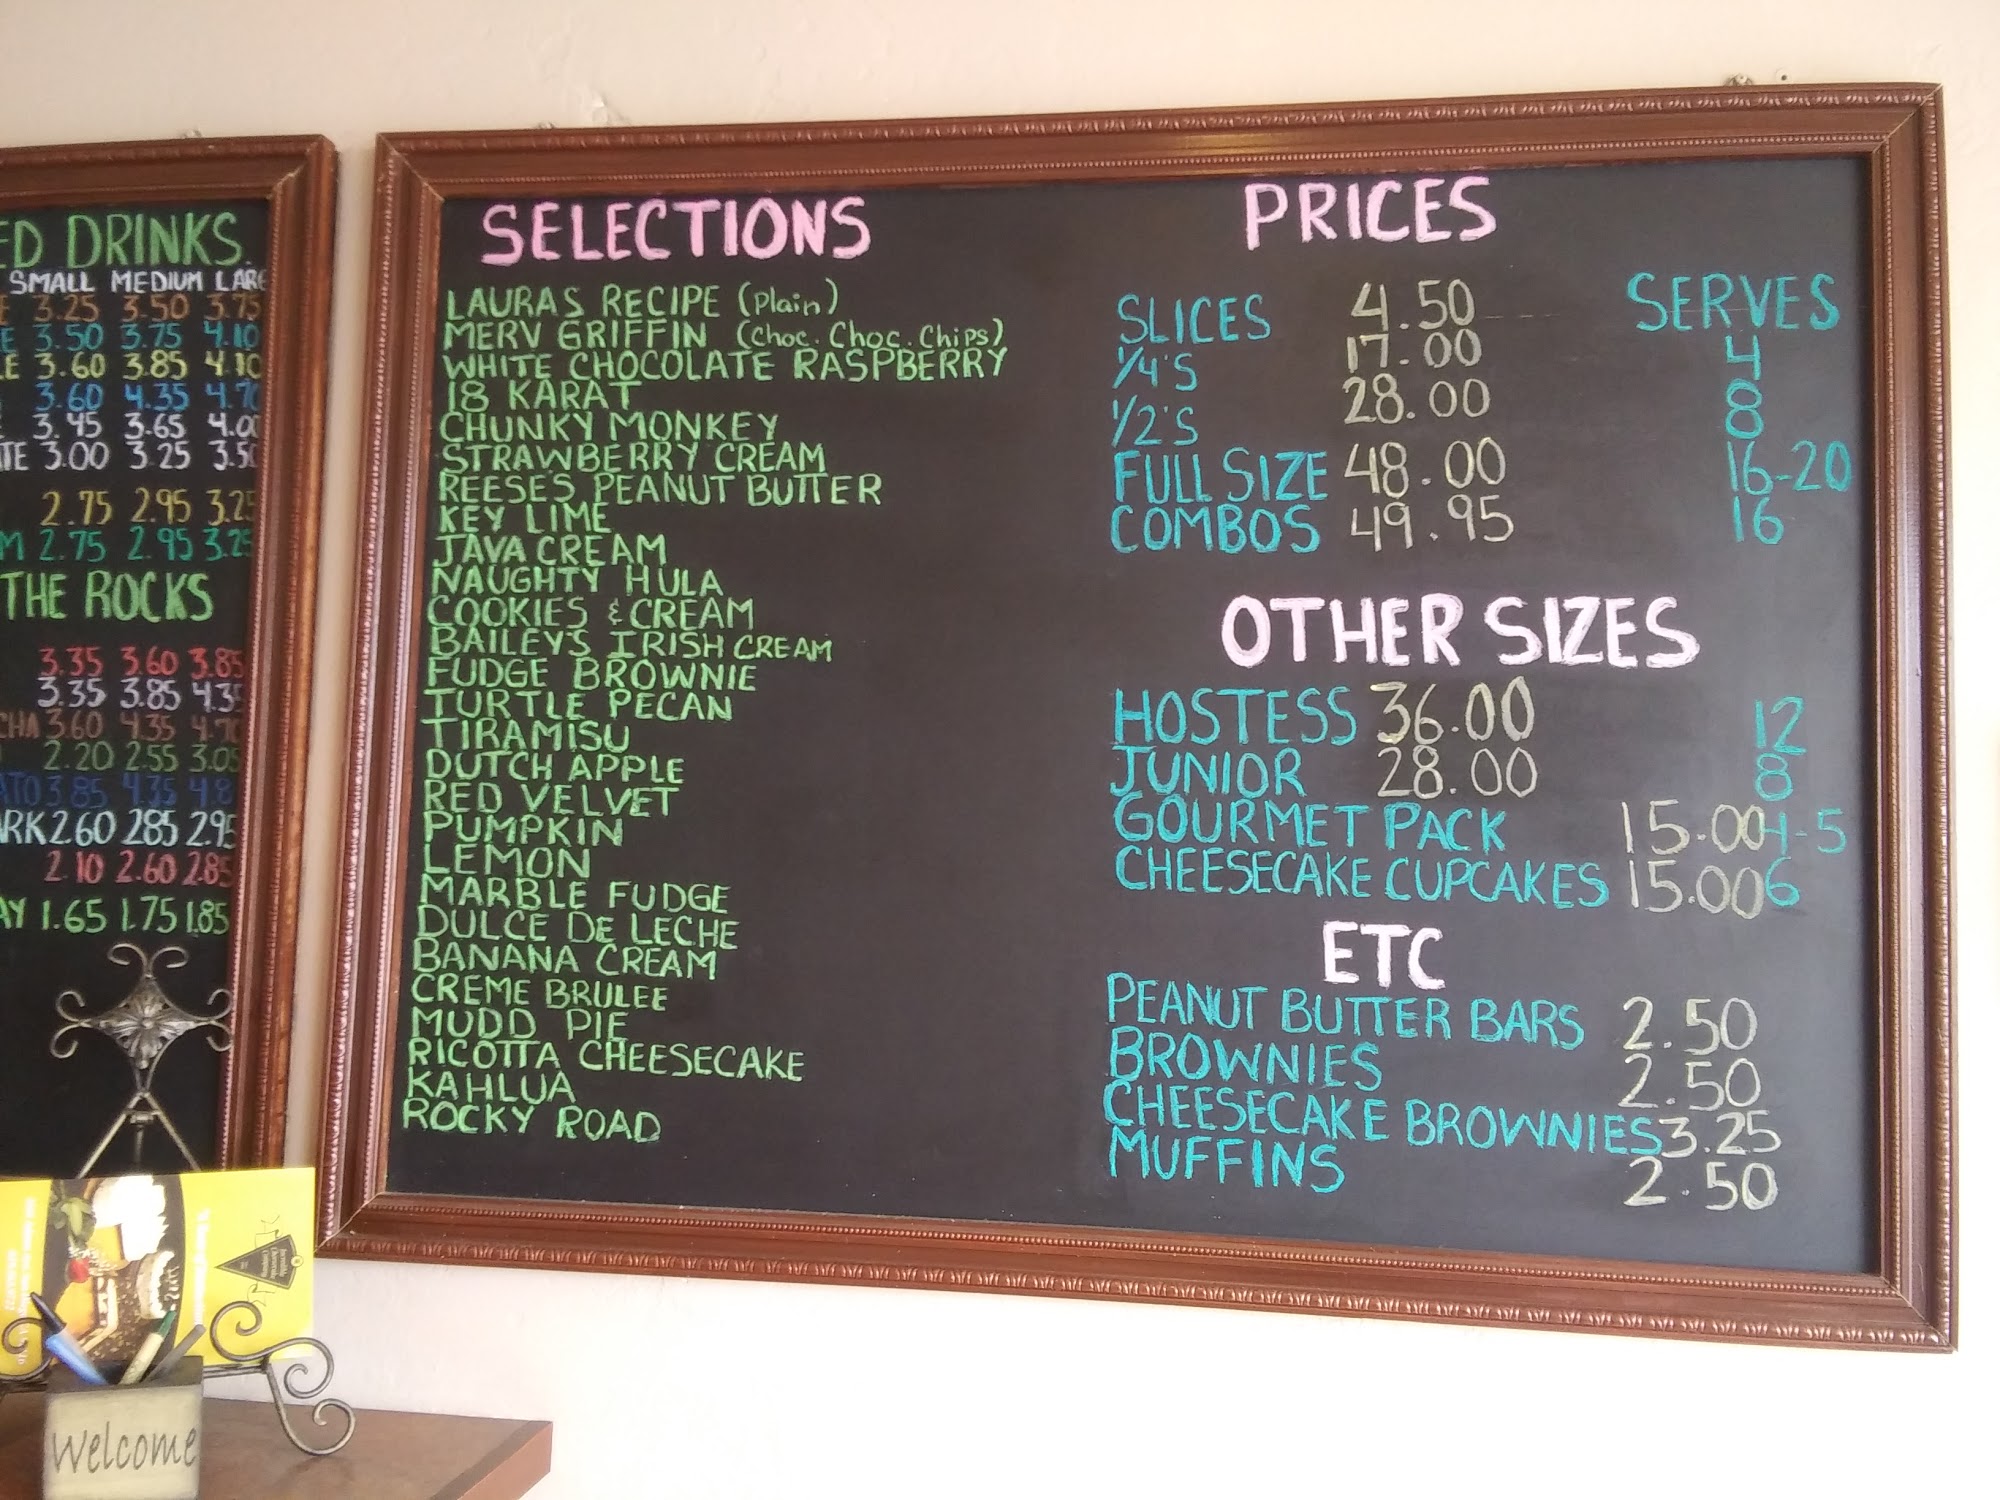 DRINKS
SMALL MEDIUM
3.25 3.50 3.75
3.50 3.75 4.10
3.60 3.85 4.10
3.60 4.35 4.70
3.45 3.65 4.00
3.00 3.25 3.50
2.75 2.95 3.25
2.75 2.95 3.25
THE ROCKS
3.35 3.60 3.85
3.35 3.85 4.35
3.60 4.35 4.70
2.20 2.55 3.05
3.85 4.35
2.60 285 2.95
2.10 2.60 2.85
1.65 1.75 1.85
SELECTIONS
LAURAS RECIPE (Plain)
MERV GRIFFIN (Choc. Choc. Chips)
WHITE CHOCOLATE RASPBERRY
18 KARAT
CHUNKY MONKEY
STRAWBERRY CREAM
REESES PEANUT BUTTER
KEY LIME
JAVA CREAM
NAUGHTY HULA
COOKIES & CREAM
BAILEY'S IRISH CREAM
FUDGE BROWNIE
TURTLE PECAN
TIRAMISU
DUTCH APPLE
RED VELVET
PUMPKIN
LEMON
MARBLE FUDGE
DULCE DE LECHE
BANANA CREAM
CREME BRULEE
MUDD PIE
RICOTTA CHEESECAKE
KAHLUA
ROCKY ROAD
PRICES
SERVES
SLICES 4.50
1/4'S 17.00 4
1/2'S 28.00 8
FULL SIZE 48.00 16-20
COMBOS 49.95 16
OTHER SIZES
HOSTESS 36.00 12
JUNIOR 28.00 8
GOURMET PACK 15.00 4-5
CHEESECAKE CUPCAKES 15.00 6
ETC
PEANUT BUTTER BARS 2.50
BROWNIES 2.50
CHEESECAKE BROWNIES 3.25
MUFFINS 2.50
Incredible
Cheesecake
Company
Welcome